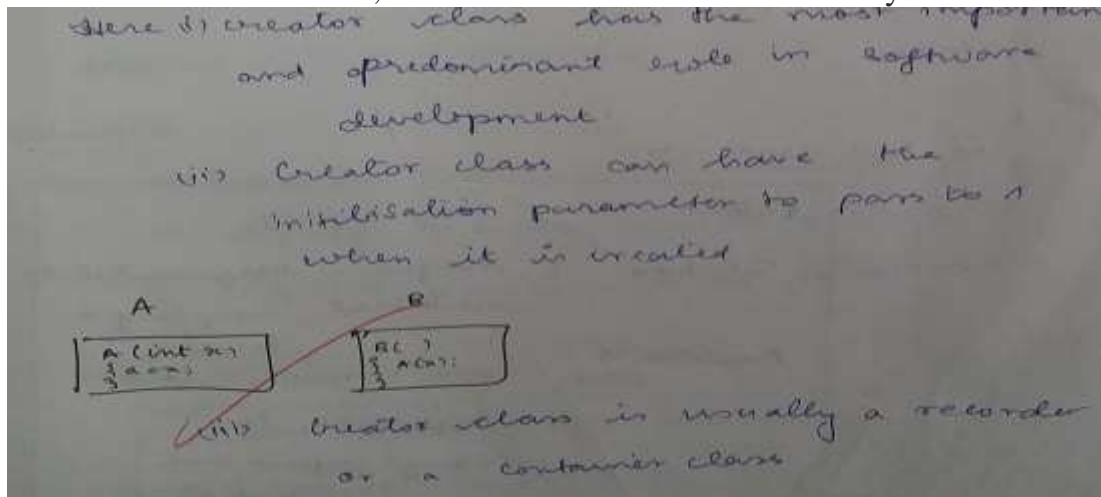 Here i) creator class has the most importan
and predominant role in software
development
(ii) Creator class can have the
initilisation parameter to pass to A
when it is created
A B
A (int x)
{ a = x;
}
B( )
{ A(x);
}
(iii) Creator class is usually a recorder
or a container class